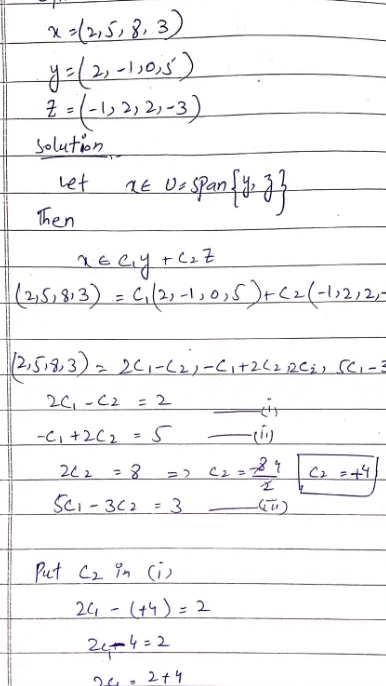 x = (2, 5, 8, 3)
y = (2, -1, 0, 5)
z = (-1, 2, 2, -3)
Solution
Let x ∈ U = Span {y, z}
Then
x ∈ C1y + C2z
(2, 5, 8, 3) = C1(2, -1, 0, 5) + C2(-1, 2, 2, -
(2, 5, 8, 3) = 2C1 - C2, -C1 + 2C2, 2C2, 5C1 - 3
2C1 - C2 = 2 —(i)
-C1 + 2C2 = 5 —(ii)
2C2 = 8 => C2 = 8/2 4 C2 = +4
5C1 - 3C2 = 3 —(iii)
Put C2 in (i)
2C1 - (+4) = 2
2C1 - 4 = 2
2C1 = 2 + 4